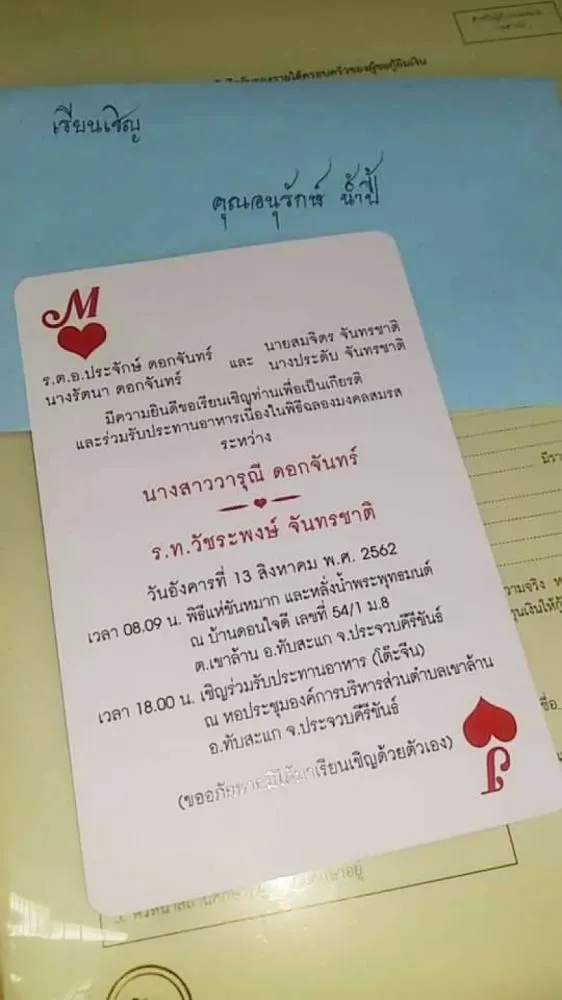 เรียนเชิญ
คุณอนุรักษ์ น้ำปี้
M
ร.ต.อ.ประจักษ์ ดอกจันทร์ และ นายสมจิตร จันทรชาติ
นางรัตนา ดอกจันทร์ นางประดับ จันทรชาติ
มีความยินดีขอเรียนเชิญท่านเพื่อเป็นเกียรติ
และร่วมรับประทานอาหารเนื่องในพิธีฉลองมงคลสมรส
ระหว่าง
นางสาววารุณี ดอกจันทร์
ร.ท.วัชระพงษ์ จันทรชาติ
วันอังคารที่ 13 สิงหาคม พ.ศ. 2562
เวลา 08.09 น. พิธีแห่ขันหมาก และหลั่งน้ำพระพุทธมนต์
ณ บ้านดอนใจดี เลขที่ 54/1 ม.8
ต.เขาล้าน อ.ทับสะแก จ.ประจวบคีรีขันธ์
เวลา 18.00 น. เชิญร่วมรับประทานอาหาร (โต๊ะจีน)
ณ หอประชุมองค์การบริหารส่วนตำบลเขาล้าน
อ.ทับสะแก จ.ประจวบคีรีขันธ์
(ขออภัยหากมิได้มาเรียนเชิญด้วยตัวเอง)
J